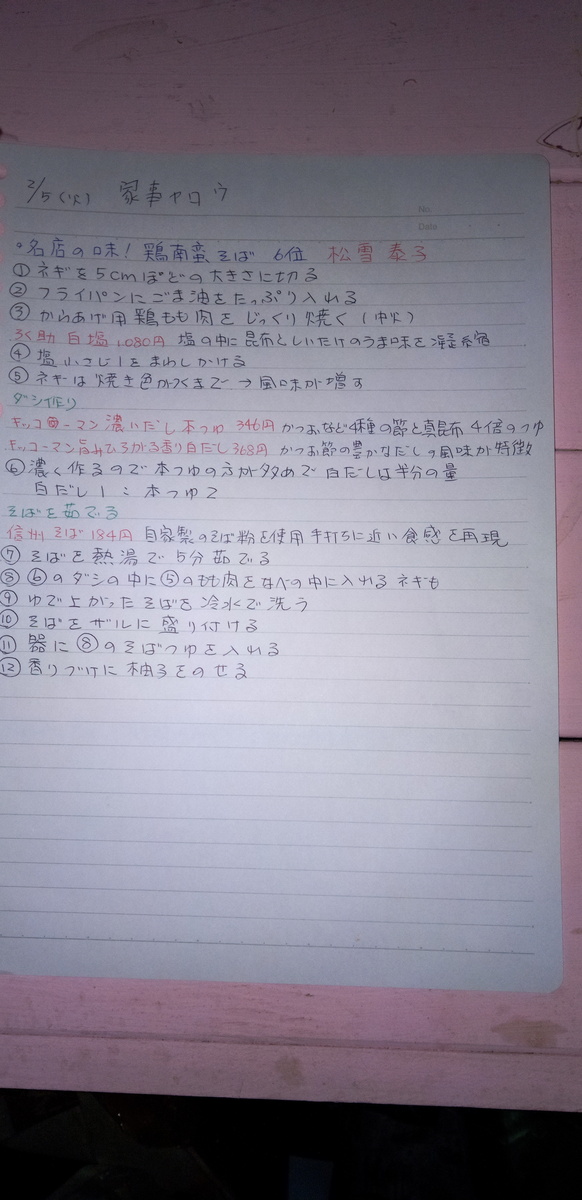 2/5(火) 家事ヤロウ
No.
Date
°名店の味! 鶏南蛮そば 6位 松雪泰子
①ネギを5cmほどの大きさに切る
②フライパンにごま油をたっぷり入れる
③からあげ用鶏もも肉をじっくり焼く(中火)
ろく助 白塩 1,080円 塩の中に昆布としいたけのうま味を凝縮
④塩小さじ1をまわしかける
⑤ネギは焼き色がつくまで→風味が増す
ダシ作り
キッコーマン濃いだし本つゆ 346円 かつおなど4種の節と真昆布 4倍のつゆ
キッコーマン旨みひろがる香り白だし368円 かつお節の豊かなだしの風味が特徴
⑥濃く作るので本つゆの方が多めで 白だしは半分の量
白だし1:本つゆ2
そばを茹でる
信州そば184円 自家製のそば粉を使用 手打ちに近い食感を再現
⑦そばを熱湯で5分茹でる
⑧⑥のダシの中に⑤のもも肉をなべの中に入れる ネギも
⑨ゆで上がったそばを冷水で洗う
⑩そばをザルに盛り付ける
⑪器に⑧のそばつゆを入れる
⑫香りづけに柚子をのせる